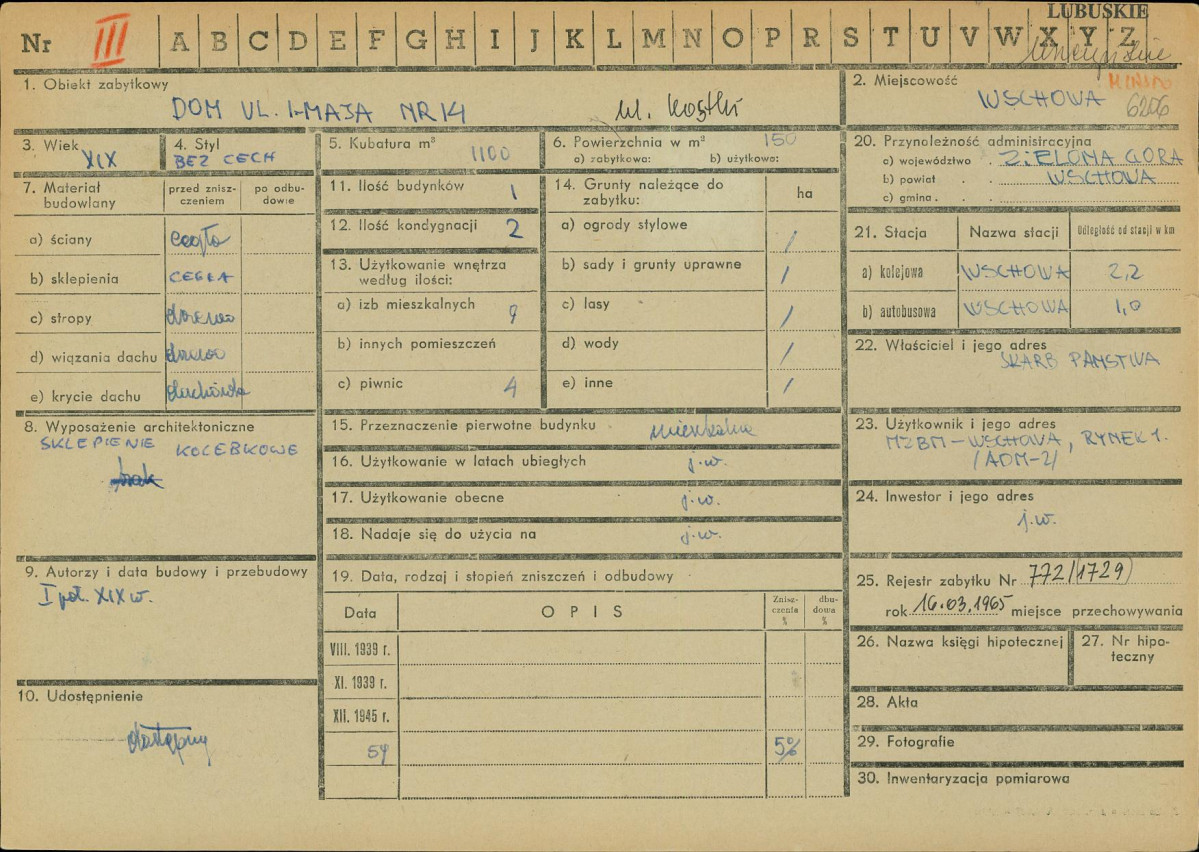 LUBUSKIE
Nr III A B C D E F G H I J K L M N O P R S T U V W X Y Z
1. Obiekt zabytkowy
DOM UL. 1-MAJA NR 14 ul. Kostki
2. Miejscowość
WSCHOWA
6206
3. Wiek
XIX
4. Styl
BEZ CECH
5. Kubatura m³
1100
6. Powierzchnia w m² 150
a) zabytkowa: b) użytkowa:
7. Materiał budowlany
przed zniszczeniem
po odbudowie
a) ściany cegła
b) sklepienia CEGŁA
c) stropy drewno
d) wiązania dachu drewno
e) krycie dachu dachówka
8. Wyposażenie architektoniczne
SKLEPIENIE KOLEBKOWE
brak
9. Autorzy i data budowy i przebudowy
I poł. XIX w.
10. Udostępnienie
dostępny
11. Ilość budynków 1
12. Ilość kondygnacji 2
13. Użytkowanie wnętrza
według ilości:
a) izb mieszkalnych 9
b) innych pomieszczeń
c) piwnic 4
14. Grunty należące do
zabytku:
ha
a) ogrody stylowe /
b) sady i grunty uprawne /
c) lasy /
d) wody /
e) inne /
15. Przeznaczenie pierwotne budynku mieszkalne
16. Użytkowanie w latach ubiegłych j.w.
17. Użytkowanie obecne j.w.
18. Nadaje się do użycia na j.w.
19. Data, rodzaj i stopień zniszczeń i odbudowy
Data
OPIS
Zniszczenia %
dbudowa %
VIII. 1939 r.
XI. 1939 r.
XII. 1945 r.
59 5%
20. Przynależność administracyjna
a) województwo . ZIELONA GÓRA
b) powiat . . WSCHOWA
c) gmina . . .
21. Stacja
Nazwa stacji
Odległość od stacji w km
a) kolejowa WSCHOWA 2,2
b) autobusowa WSCHOWA 1,0
22. Właściciel i jego adres
SKARB PAŃSTWA
23. Użytkownik i jego adres
MZBM-WSCHOWA, RYNEK 1.
/ADM-2/
24. Inwestor i jego adres
j.w.
25. Rejestr zabytku Nr 772/1729)
rok 16.03.1965 miejsce przechowywania
26. Nazwa księgi hipotecznej
27. Nr hipoteczny
28. Akta
29. Fotografie
30. Inwentaryzacja pomiarowa